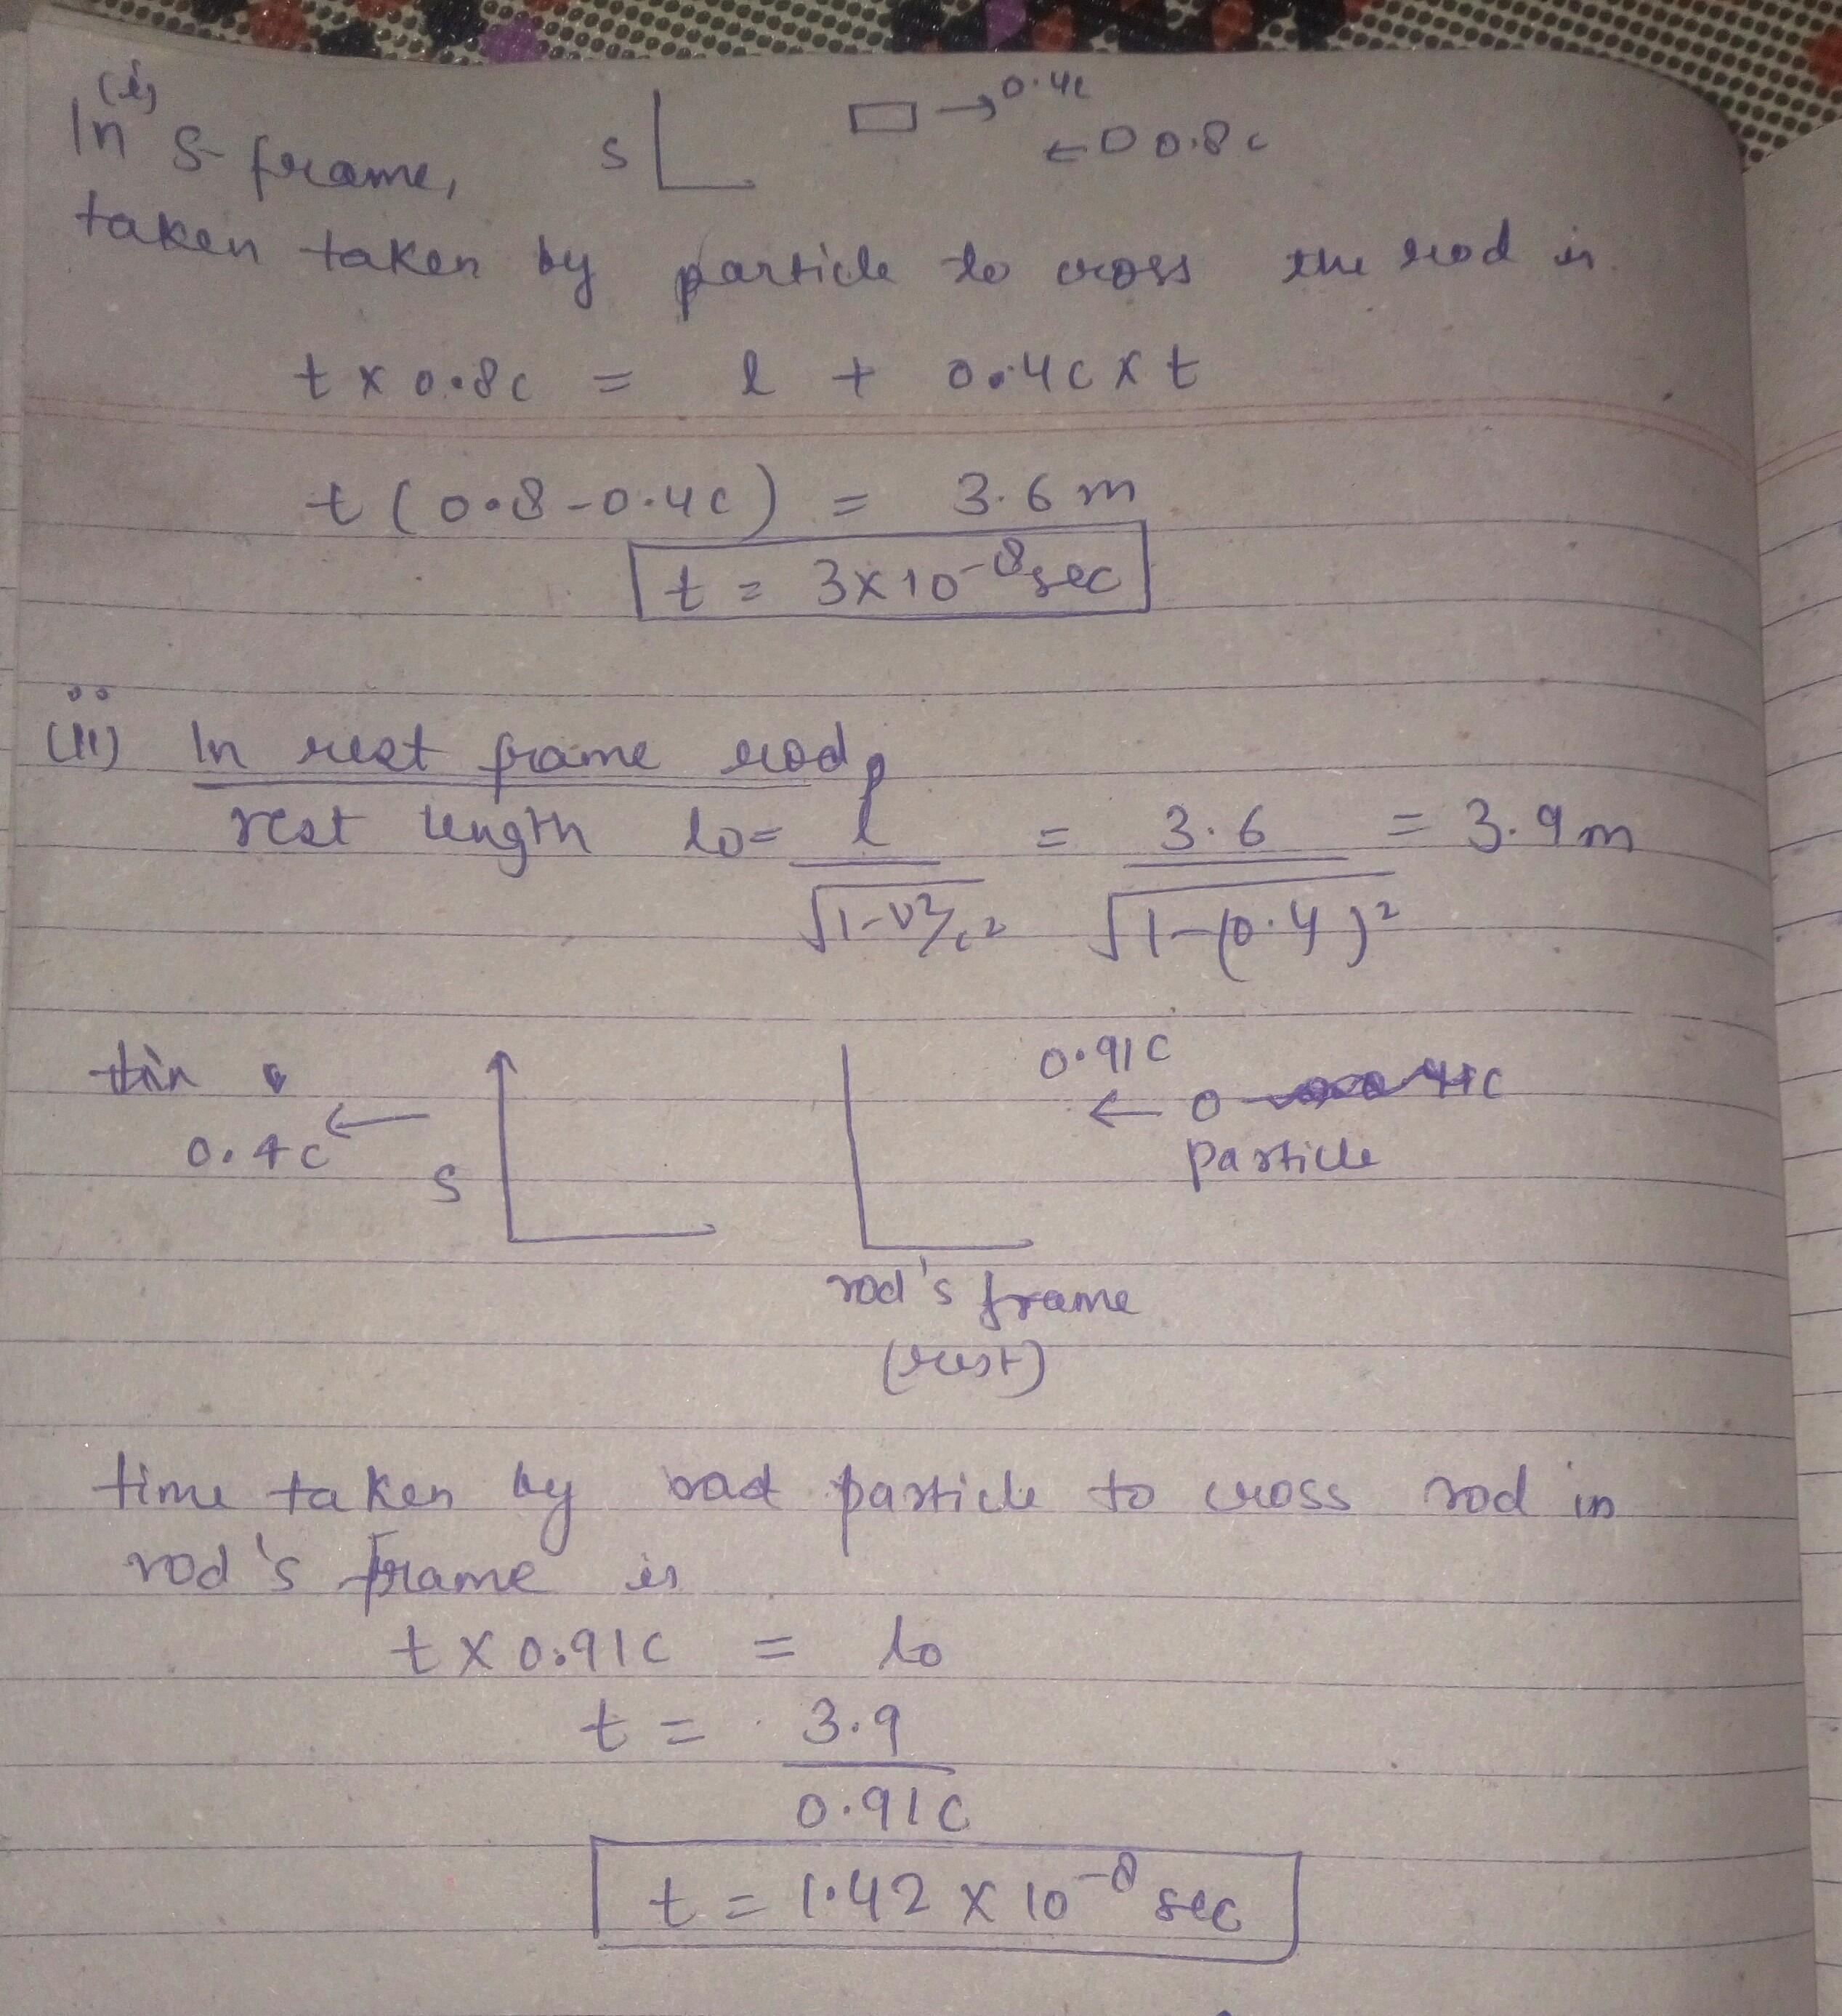 (i)
In S-frame, S → 0.4c
← 0.8c
taken taken by particle to cross the rod is
t x 0.8c = l + 0.4c x t
t (0.8-0.4c) = 3.6 m
t = 3x10-8 sec
(ii) In rest frame rod,
rest length lo= l/√1-v²/c² = 3.6/√1-(0.4)² = 3.9 m
0.91c
0.4c ← S ← particle
rod's frame
(rest)
time taken by particle to cross rod in
rod's frame is
t x 0.91c = lo
t = 3.9/0.91c
t = 1.42 x 10-8 sec